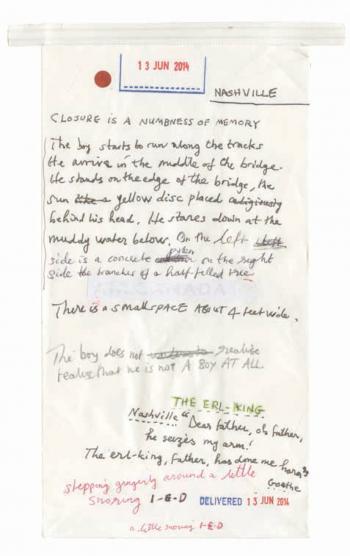 13 JUN 2014
NASHVILLE
CLOSURE IS A NUMBNESS OF MEMORY
The boy starts to run along the tracks
He arrives in the middle of the bridge.
He stands on the edge of the bridge, the
sun like a yellow disc placed
behind his head. He stares down at the
muddy water below. On the left left
side is a concrete on the right
side the branches of a half-felled tree
There is a small SPACE ABOUT 4 feet wide.
The boy does not realise
realise that he is not A BOY AT ALL
THE ERL-KING
Nashville "Dear father, oh father,
he seizes my arm!
The erl-king, father, has done me harm"
Goethe
stepping gingerly around a little
snoring I-E-D DELIVERED 13 JUN 2014
a little snoring I-E-D